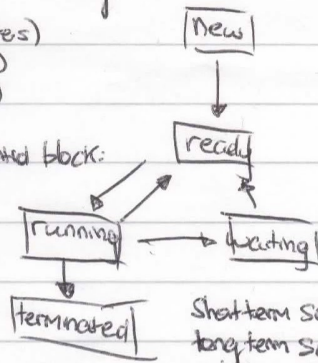 es)
new
ready
block:
running
waiting
terminated
Short term S
long term S